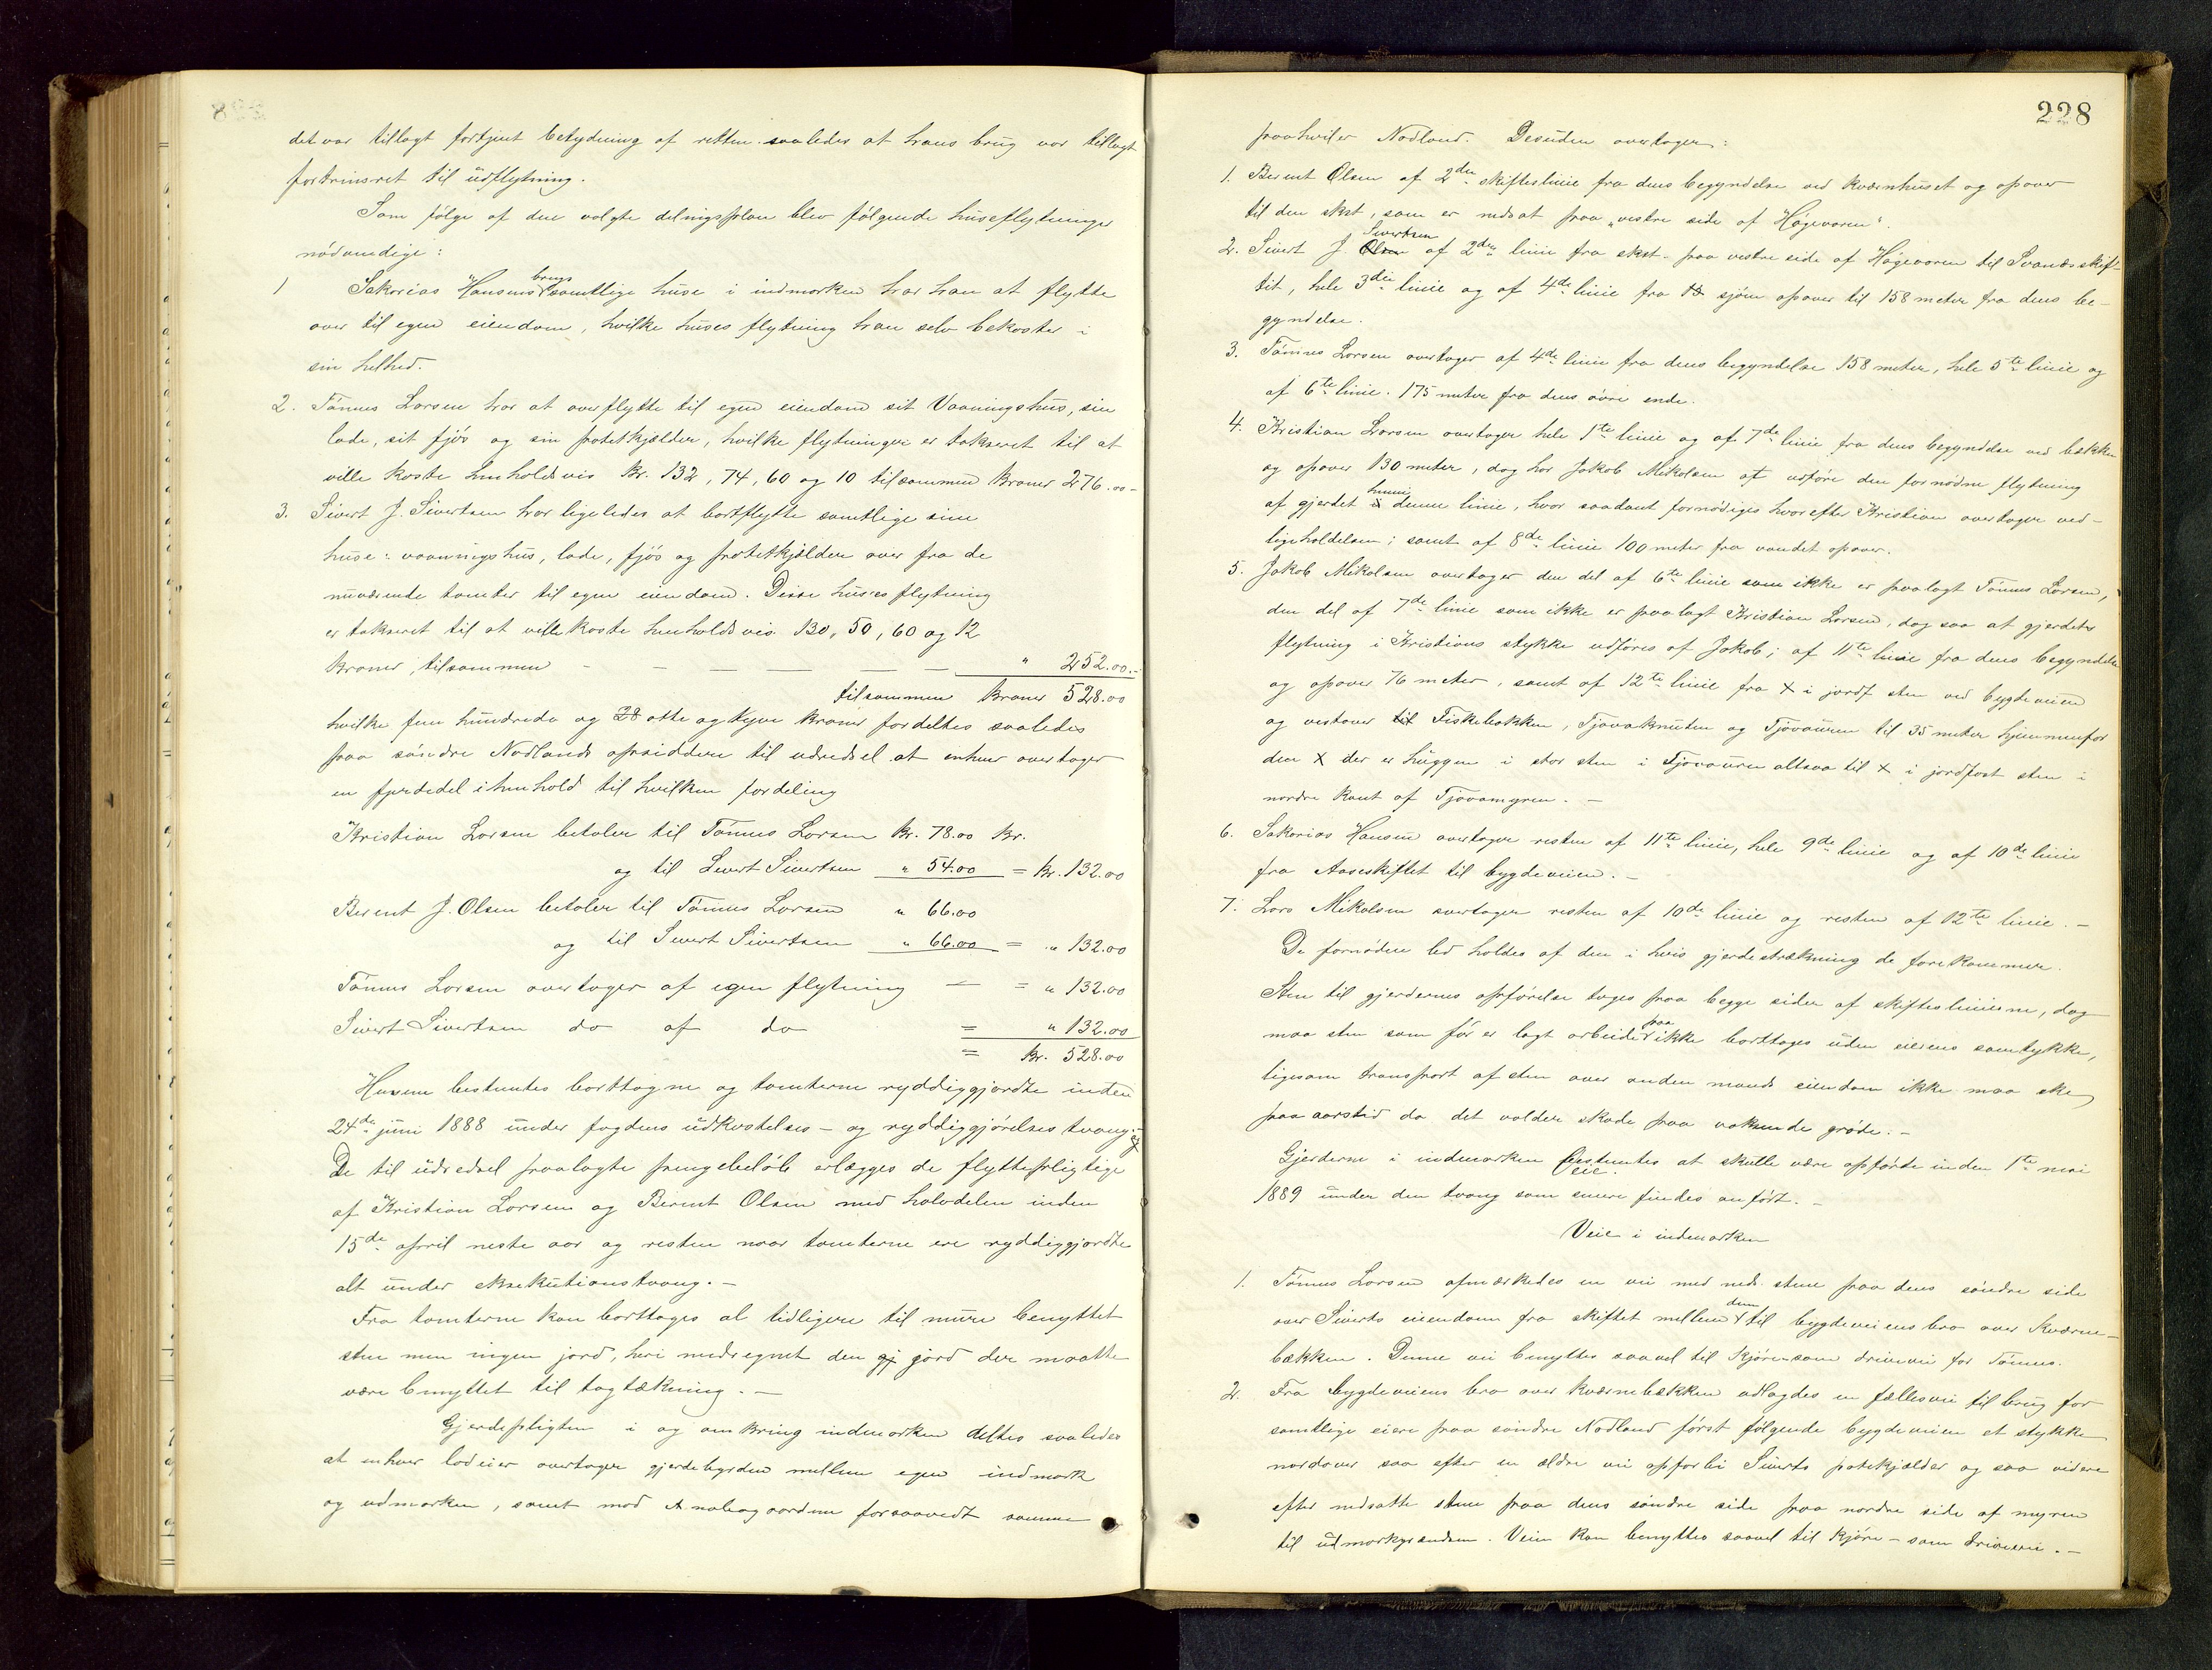 det var tillagt fortjent betydning af retten saaledes at hans brug var tillagt
fortrinsret til üdflytning.
Som følge af den valgte delingsplan blev følgende hüseflytninger
nødvendige:
1 Sakarias Hansens brugs samtlige huse i indmarken har han at flytte
over til egen eiendom, hvilke huses flytning han selv bekoster i
sin helhed.
2. Tønnes Larsen har at overflytte til egen eiendom sit Vaaningshus, sin
lade, sit fjøs og sin potetkjælder, hvilke flytninger er takseret til at
ville koste henholdsvis Kr. 132, 74, 60 og 10 tilsammen Kroner 276.00-
3. Sivert J. Sivertsen har ligeledes at bortflytte samtlige sine
huse: vaaningshus, lade, fjøs og potetkjælder over fra de
nuværende tomter til egen eiendom. Disse huses flytning
er takseret til at ville koste henholdsvis 130, 50, 60 og 12
Kroner, tilsammen - - - - - " 252.00.-
tilsammen Kroner 528.00
hvilke fem hundrede og 28 otte og tyve kroner fordeltes saaledes
paa søndre Nodlands opsiddere til udredsel at enhver overtager
en fjerdedel i henhold til hvilken fordeling
Kristian Larsen betaler til Tønnes Larsen Kr. 78.00 Kr.
og til Sivert Sivertsen " 54.00 = Kr. 132.00
Berent J. Olsen betaler til Tønnes Larsen " 66.00
og til Sivert Sivertsen " 66.00 = " 132.00
Tønnes Larsen overtager af egen flytning - = " 132.00
Sivert Sivertsen do af do = " 132.00
= Kr. 528.00
Husene bestemtes borttagne og tomterne ryddiggjordte inden
24de juni 1888 under fogdens üdkastelses- og ryddiggjørelses tvang.-
De til üdredsel paalagte pengebeløb erlægges de flyttepligtige
af Kristian Larsen og Berent Olsen med halvdelen inden
15de april neste aar og resten naar tomterne ere ryddiggjordte
alt ünder eksekutionstvang.-
Fra tomterne kan borttages al tidligere til mure benyttet
sten men ingen jord, heri medregnet den gj jord der maatte
være benyttet til tagtækning.-
Gjerdepligten i og omkring indmarken deltes saaledes
at enhver lodeier overtager gjerdebyrden mellem egen indmark
og udmarken, samt mod Anabogaardene forsaavidt samme
228
paahviler Nodland. Desuden overtager:
1. Berent Olsen af 2den skifteslinie fra dens begyndelse ved kværnhuset og opover
til den skst, som er nedsat paa "vestre side af Høgevaren".
2. Sivert J. Olsen Sivertsen af 2den linie fra skst. paa vestre side af Høgevaren til Svanæsskif-
tet, hele 3die linie og af 4de linie fra sjøen opover til 158 meter fra dens be-
gyndelse.
3. Tønnes Larsen overtager af 4de linie fra dens begyndelse 158 meter, hele 5te linie og
af 6te linie. 175 meter fra dens øvre ende.
4. Kristian Larsen overtager hele 1ste linie og af 7de linie fra dens begyndelse ved bækken
og opover 130 meter, dog har Jakob Mikalsen at udføre den fornødne flytning
af gjerdet i henne denne linie, hvor saadant fornødiges hvorefter Kristian overtager ved-
ligeholdelsen; samt af 8de linie 100 meter fra vandet opover.
5. Jakob Mikalsen overtager den del af 6te linie som ikke er paalagt Tønnes Larsen,
den del af 7de linie som ikke er paalagt Kristian Larsen, dog saa at gjerdets
flytning i Kristians stykke udføres af Jakob; af 11te linie fra dens begyndelse
og opover 76 meter, samt af 12te linie fra X i jordf sten ved bygdeveien
og vestover til Fiskebakken, Tjøvaknuten og Tjøvauren til 35 meter hjemmenfor
den X der er huggen i stor sten i Tjøvauren altsaa til X i jordfast sten i
nordre kant af Tjøvamyren.-
6. Sakarias Hansen overtager resten af 11te linie, hele 9de linie og af 10de linie
fra Aaseskiftet til bygdeveien.-
7. Lars Mikalsen overtager resten af 10de linie og resten af 12te linie.-
De fornødne led holdes af den i hvis gjerdestrækning de forekommer.
Sten til gjerdernes opførelse tages paa begge sider af skifteslinierne, dog
maa sten som før er lagt arbeide paa ikke borttages uden eierens samtykke,
ligesom transport af sten over anden mands eiendom ikke maa ske
paa aarstid da det volder skade paa voksende grøde.-
Gjerderne i indmarken bestemtes at skulle være opførte inden 1ste mai
1889 under den tvang som senere findes anført.-
Veie i indmarken
1. Tønnes Larsen afmærkedes en vei med neds. stene paa dens søndre side
over Siverts eiendom fra skiftet mellem dem til bygdeveiens bro over Kværne-
bækken. Denne vei benyttes saavel til kjøre- som drivevei for Tønnes.
2. Fra bygdeveiens bro over kværnebækken udlagdes en fællesvei til brug for
samtlige eiere paa søndre Nodland først følgende bygdeveien et stykke
nordover saa efter en ældre vei op forbi Siverts potetkjælder og saa videre
efter nedsatte stene paa dens søndre side paa nordre side af myren
til üdmarkgrændsen. Veien kan benyttes saavel til kjøre- som drivevei.-